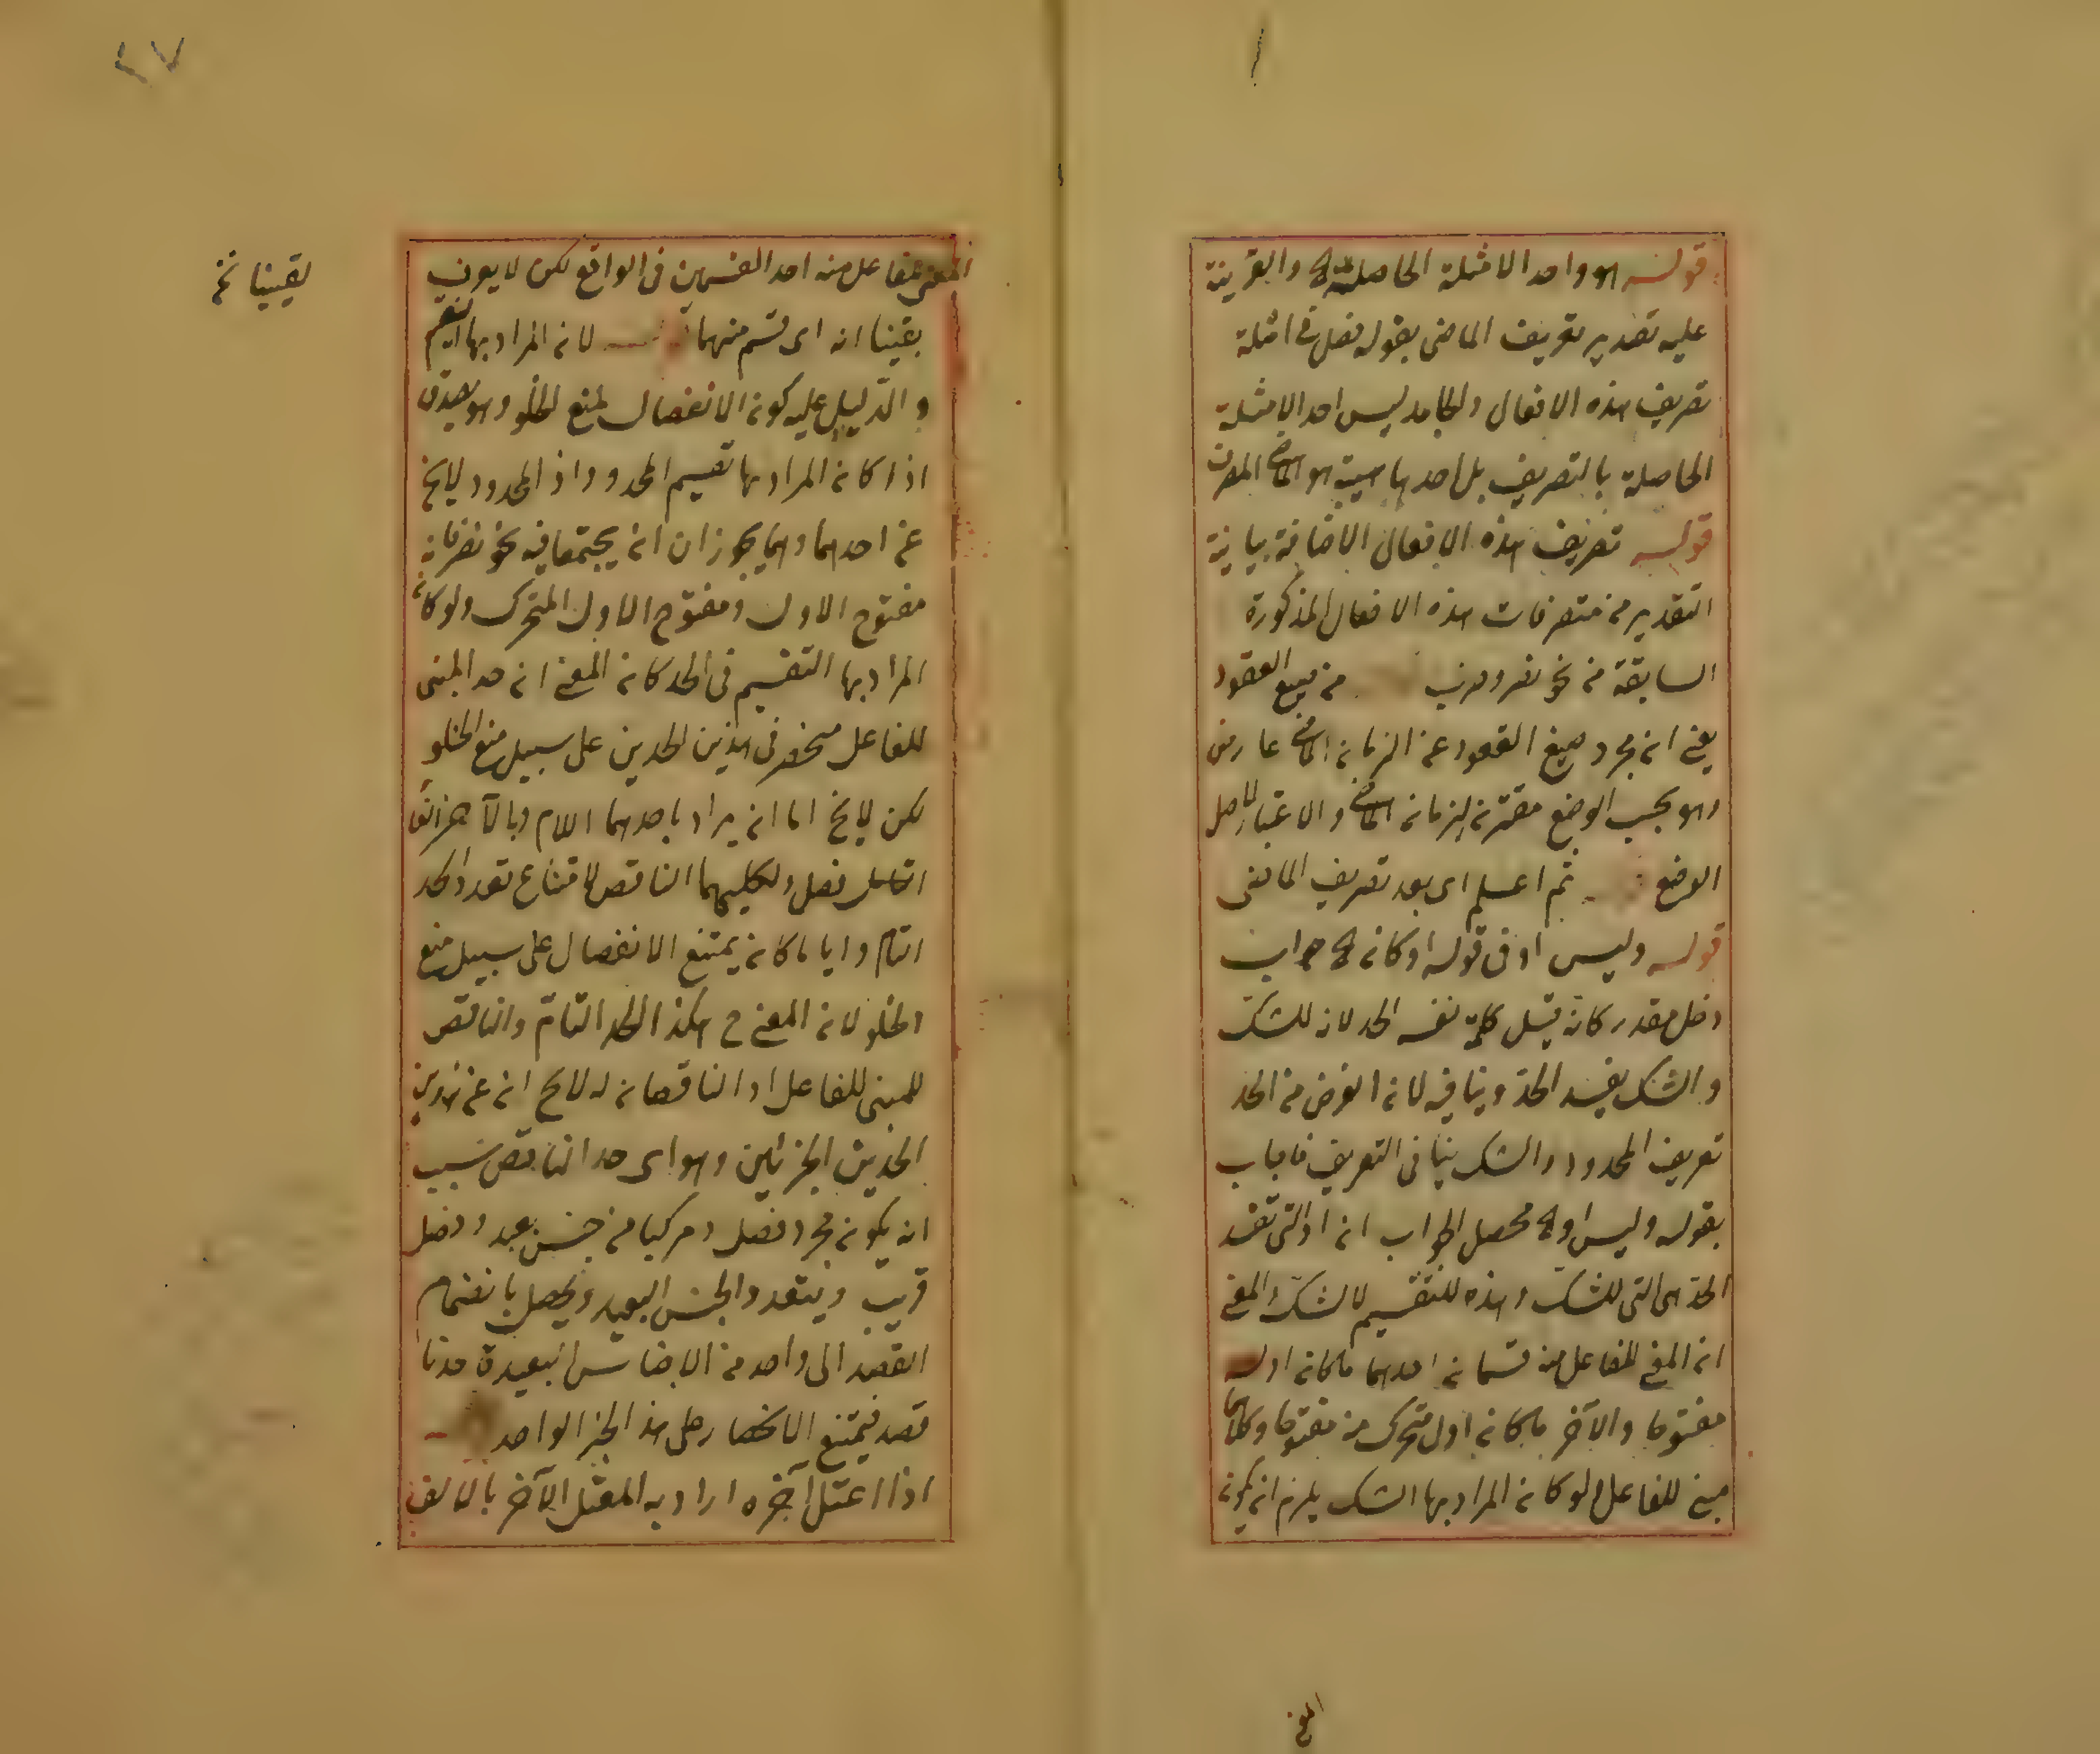 قوله هو واحد الامثلة الحاصلة والقرينة
عليه تقدير تعريف الماضى بقوله فصل فى امثلة
تصريف هذه الافعال والجامد ليس احد الامثلة
الحاصلة بالتصريف بل احد هو الماضى
قوله تصريف هذه الافعال الاضافة بيانية
التقدير من متصرفات هذه الافعال المذكورة
السابقة من نحو نصر وضرب من صيغ العقود
يعنى ان مجرد صيغ العقود عن الزمان الماضى عارض
وهو بحسب الوضع مقترن بزمان الماضى والاعتبار لاصل
الوضع ثم اعلم اى بعد تعريف الماضى
قوله وليس او فى قوله او كان جواب
دخل مقدر كانه قيل كلمة تفسد الحد لانه للشك
والشك يفسد الحد وينافيه لان الغرض من الحد
تعريف المحدود والشك ينافى التعريف فاجاب
بقوله وليس او محصل الجواب ان او التى تفسد
الحد هى التى للشك وهذه للتقسيم لا للشك والمعنى
ان المبنى للفاعل منه قسمان احدهما ما كان اوله
مفتوحا والآخر ما كان اول متحرك منه مفتوحا
مبنى للفاعل ولو كان المراد بها الشك يلزم ان يكون
المعنى
٢٧
للفاعل منه احد القسمين فى الواقع لكن لا يعرف
يقينا انه اى قسم منهما لان المراد بها
والدليل عليه كون الانفصال لمنع الخلو وهو يصدق
اذا كان المراد بها تقسيم المحدود اذ المحدود لا يخ
عن احدهما وهما يجوز ان يجتمعا فيه نحو نصر فانه
مفتوح الاول ومفتوح الاول المتحرك ولو كان
المراد بها التقسيم فى الحد كان المعنى ان حد المبنى
للفاعل منحصر فى هذين الحدين على سبيل منع الخلو
لكن لا يخ اما ان يراد باحدهما التام وبالآخر الناقص
فصل ولكليهما الناقص لامتناع تعدد الحد
التام وايا ما كان يمتنع الانفصال على سبيل منع
الخلو لان المعنى ح هكذا الحد التام والناقص
للمبنى للفاعل او الناقصان له لا يخ ان عن هذين
الحدين الجزئين وهو اى حد الناقص بسبب
ان يكون مجرد فصل ومركبا من جنس بعيد وفصل
قريب ويتعدد الجنس البعيد ويحصل بانضمام
الفصل الى واحد من الاجناس البعيدة حدنا
قصد فيمتنع الانحصار على هذا الجزء الواحد
اذا اعتل آخره اراد به المعتل الآخر بالالف
يقينا نخ